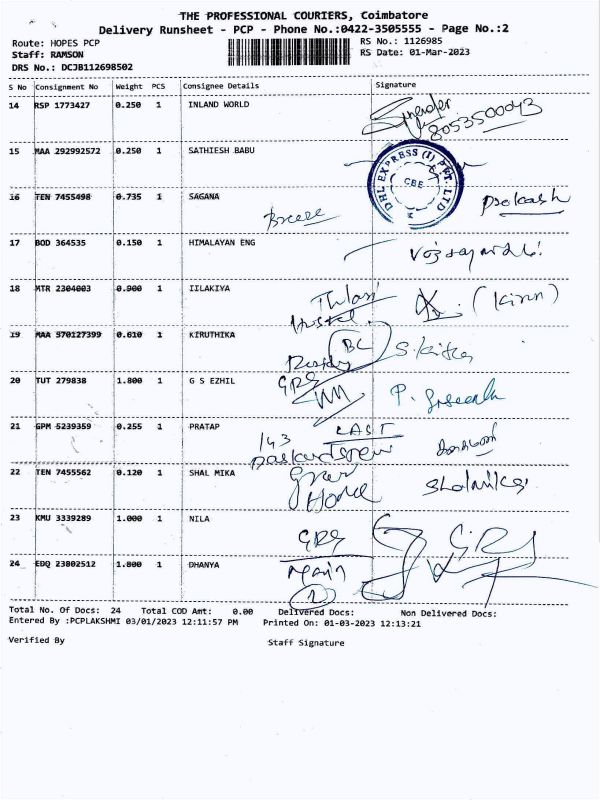 THE PROFESSIONAL COURIERS, Coimbatore
Delivery Runsheet - PCP - Phone No.:0422-3505555 - Page No.:2
Route: HOPES PCP RS No.: 1126985
Staff: RAMSON RS Date: 01-Mar-2023
DRS No.: DCJB112698502
S No Consignment No Weight PCS Consignee Details Signature
14 RSP 1773427 0.250 1 INLAND WORLD
8053500043
15 MAA 292992572 0.250 1 SATHIESH BABU
DHL EXPRESS (I) PVT. LTD
CBE
16 TEN 7455498 0.735 1 SAGANA
Prakash
17 BOD 364535 0.150 1 HIMALAYAN ENG
18 MTR 2304003 0.900 1 IILAKIYA
Hostel (Kiran)
19 MAA 570127399 0.610 1 KIRUTHIKA
BC
20 TUT 279838 1.800 1 G S EZHIL
GRG
21 GPM 5239359 0.255 1 PRATAP
143 LAST
22 TEN 7455562 0.120 1 SHAL MIKA
Home Shalmika
23 KMU 3339289 1.000 1 NILA
GRG GRG
24 EDQ 23802512 1.800 1 DHANYA
Main
1
Total No. Of Docs: 24 Total COD Amt: 0.00 Delivered Docs: Non Delivered Docs:
Entered By :PCPLAKSHMI 03/01/2023 12:11:57 PM Printed On: 01-03-2023 12:13:21
Verified By Staff Signature